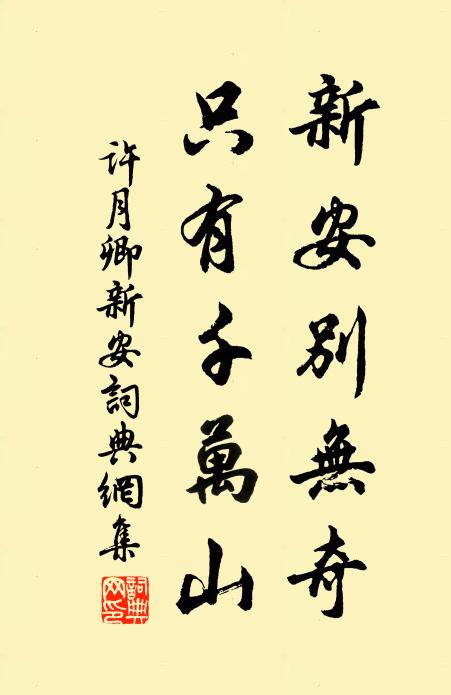 新安別無奇
只有千萬山
許月卿新安詞典網集
詞典网印